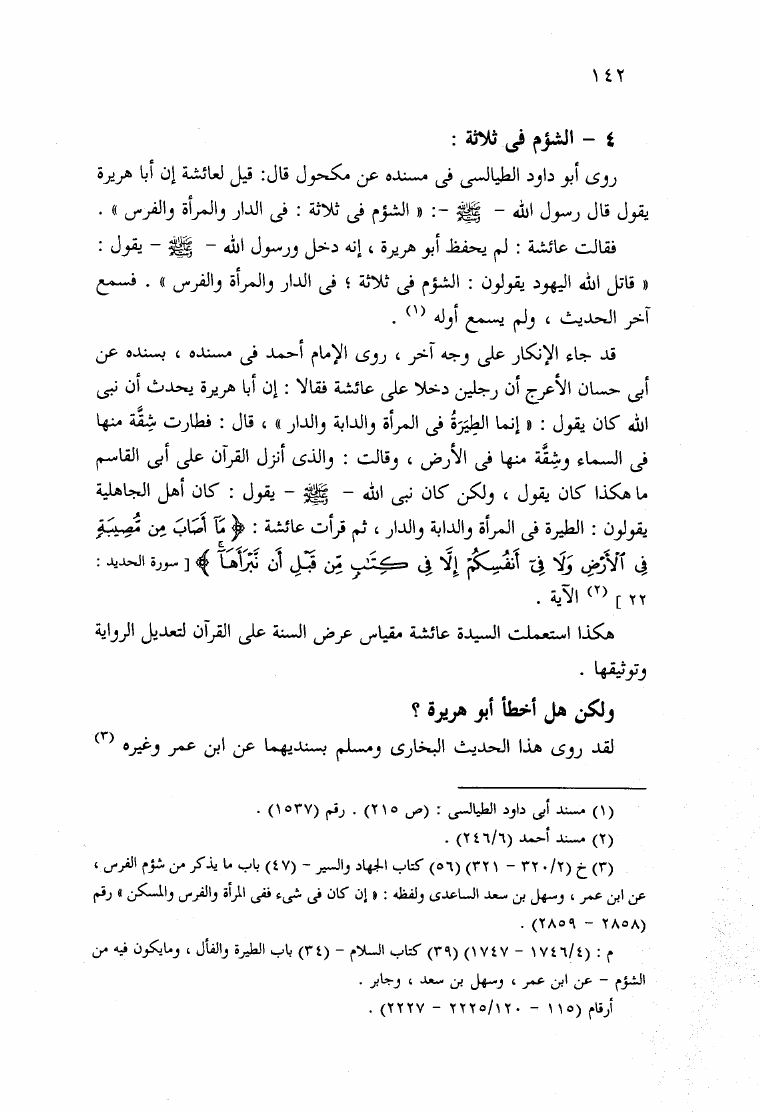 ١٤٢
٤ – الشؤم فى ثلاثة :
روى أبو داود الطيالسى فى مسنده عن مكحول قال: قيل لعائشة إن أبا هريرة
يقول قال رسول الله – ﷺ –: « الشؤم فى ثلاثة : فى الدار والمرأة والفرس » .
فقالت عائشة : لم يحفظ أبو هريرة ، إنه دخل ورسول الله – ﷺ – يقول :
« قاتل الله اليهود يقولون : الشؤم فى ثلاثة ؛ فى الدار والمرأة والفرس » . فسمع
آخر الحديث ، ولم يسمع أوله (١) .
قد جاء الإنكار على وجه آخر ، روى الإمام أحمد فى مسنده ، بسنده عن
أبى حسان الأعرج أن رجلين دخلا على عائشة فقالا : إن أبا هريرة يحدث أن نبى
الله كان يقول : « إنما الطِيَرَةُ فى المرأة والدابة والدار » ، قال : فطارت شِقَّة منها
فى السماء وشِقَّة منها فى الأرض ، وقالت : والذى أنزل القرآن على أبى القاسم
ما هكذا كان يقول ، ولكن كان نبى الله – ﷺ – يقول : كان أهل الجاهلية
يقولون : الطيرة فى المرأة والدابة والدار ، ثم قرأت عائشة : ﴿ مَآ أَصَابَ مِن مُّصِيبَةٍ
فِى ٱلْأَرْضِ وَلَا فِىٓ أَنفُسِكُمْ إِلَّا فِى كِتَٰبٍ مِّن قَبْلِ أَن نَّبْرَأَهَآ ﴾ [ سورة الحديد :
٢٢ ] (٢) الآية .
هكذا استعملت السيدة عائشة مقياس عرض السنة على القرآن لتعديل الرواية
وتوثيقها .
ولكن هل أخطأ أبو هريرة ؟
لقد روى هذا الحديث البخارى ومسلم بسنديهما عن ابن عمر وغيره (٣)
(١) مسند أبى داود الطيالسى : (ص ٢١٥) . رقم (١٥٣٧) .
(٢) مسند أحمد (٢٤٦/٦) .
(٣) خ (٣٢٠/٢ – ٣٢١) (٥٦) كتاب الجهاد والسير – (٤٧) باب ما يذكر من شؤم الفرس ،
عن ابن عمر ، وسهل بن سعد الساعدى ولفظه : « إن كان فى شىء ففى المرأة والفرس والمسكن » رقم
(٢٨٥٨ – ٢٨٥٩) .
م : (١٧٤٦/٤ – ١٧٤٧) (٣٩) كتاب السلام – (٣٤) باب الطيرة والفأل ، ومايكون فيه من
الشؤم – عن ابن عمر ، وسهل بن سعد ، وجابر .
أرقام (١١٥ – ٢٢٢٥/١٢٠ – ٢٢٢٧) .